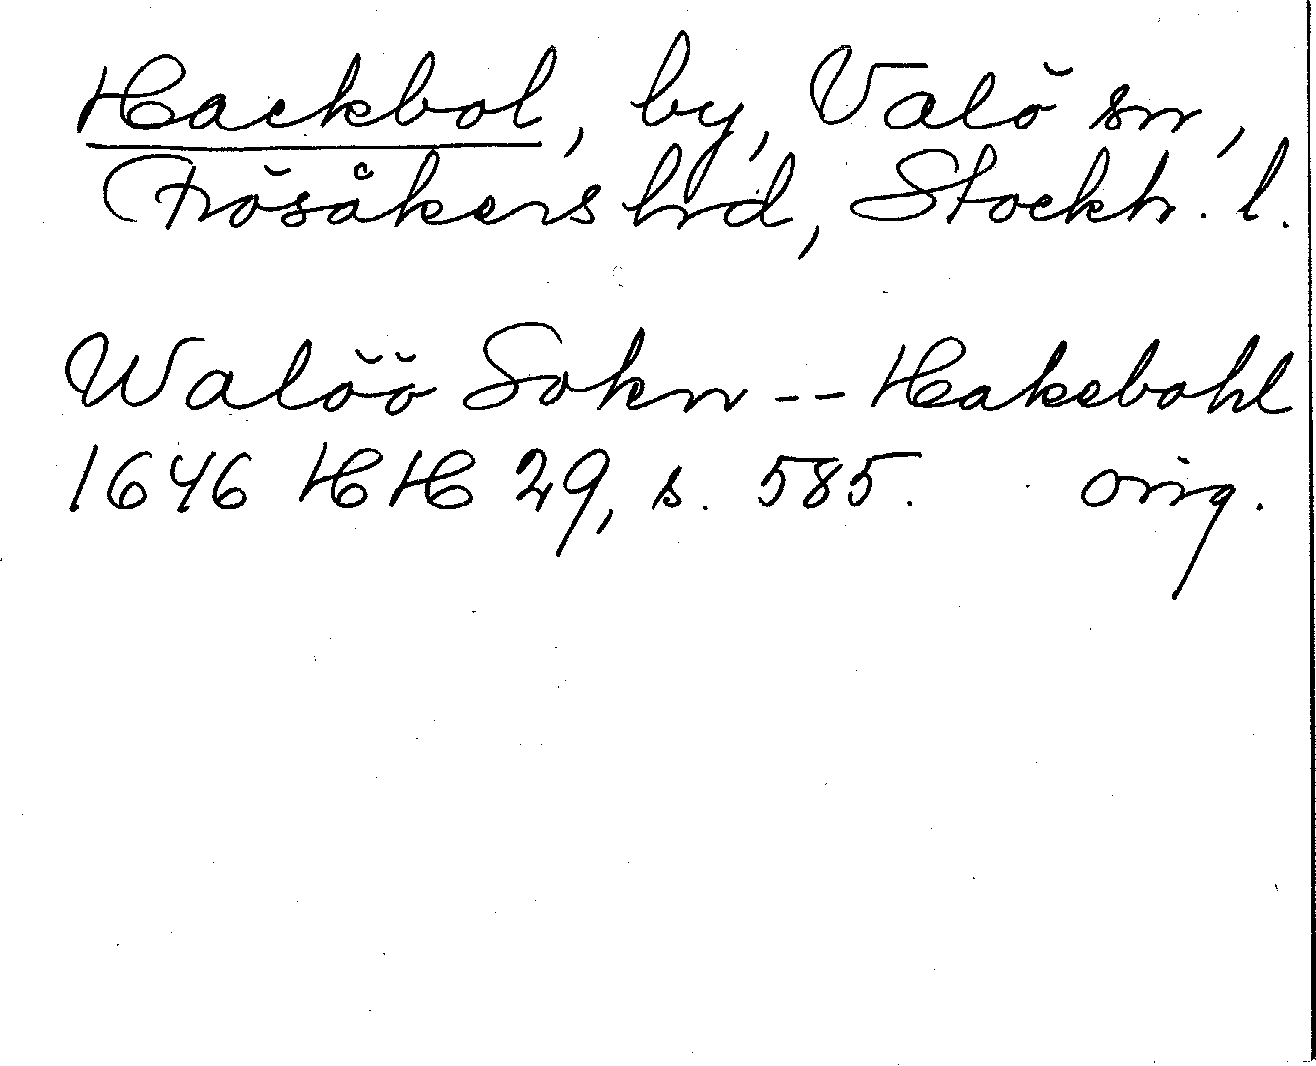 Hackbol, by, Valö sn,
Frösåkers hrd, Stockh. l.
Walöö Sokn -- Hakebohl
1646 HH 29, s. 585. orig.